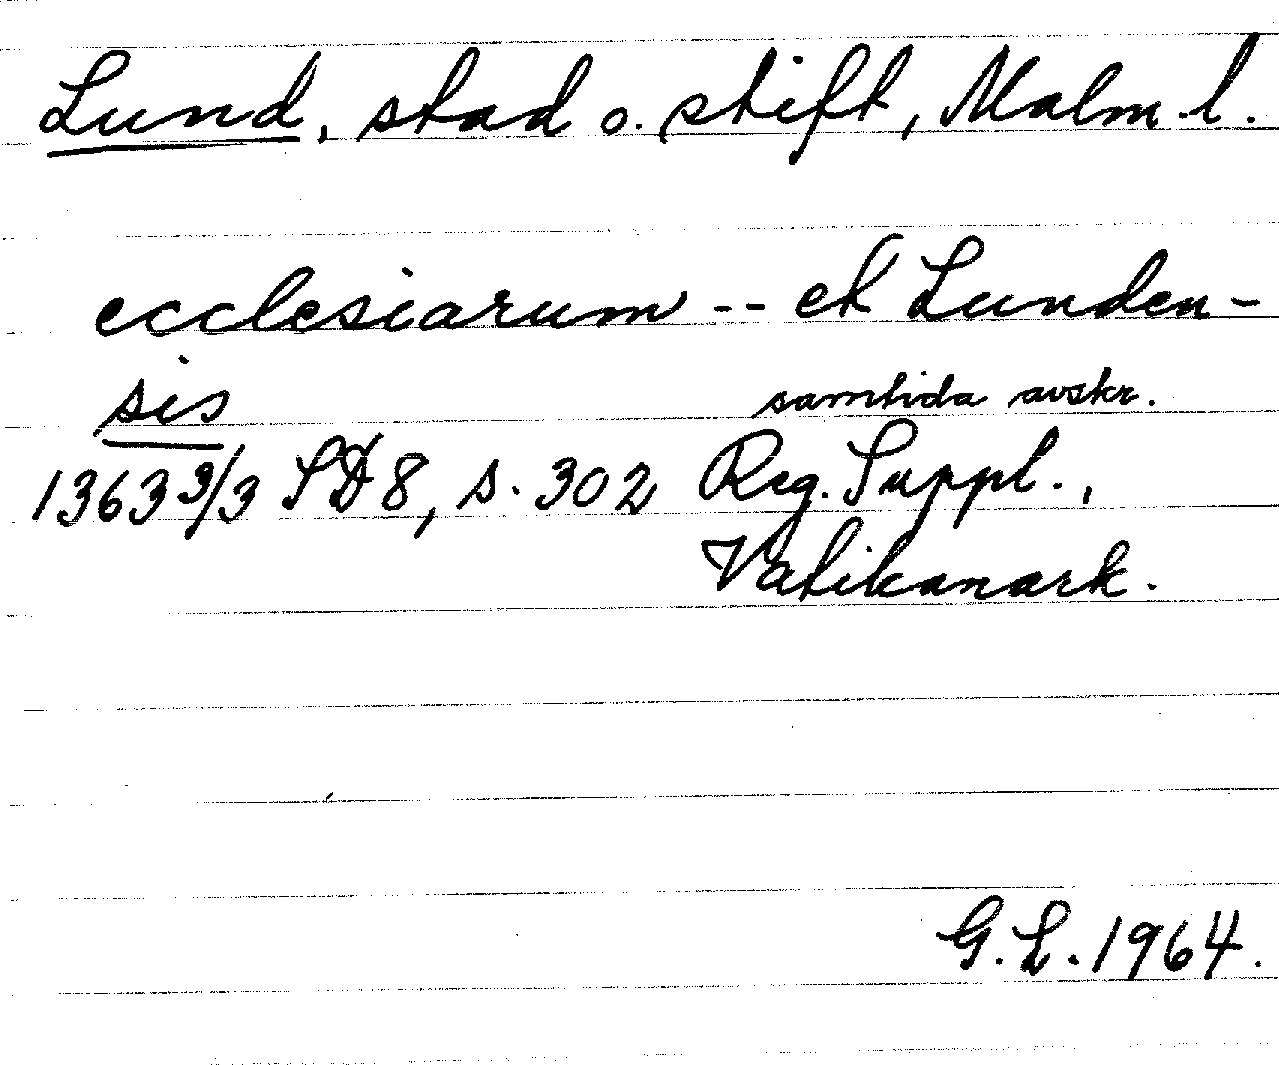 Lund, stad o. stift, Malm. l.
ecclesiarum -- et Lunden-
sis
samtida avskr.
1363 3/3 SD 8, s. 302 Reg. Suppl.,
Vatikanark.
G.L. 1964.